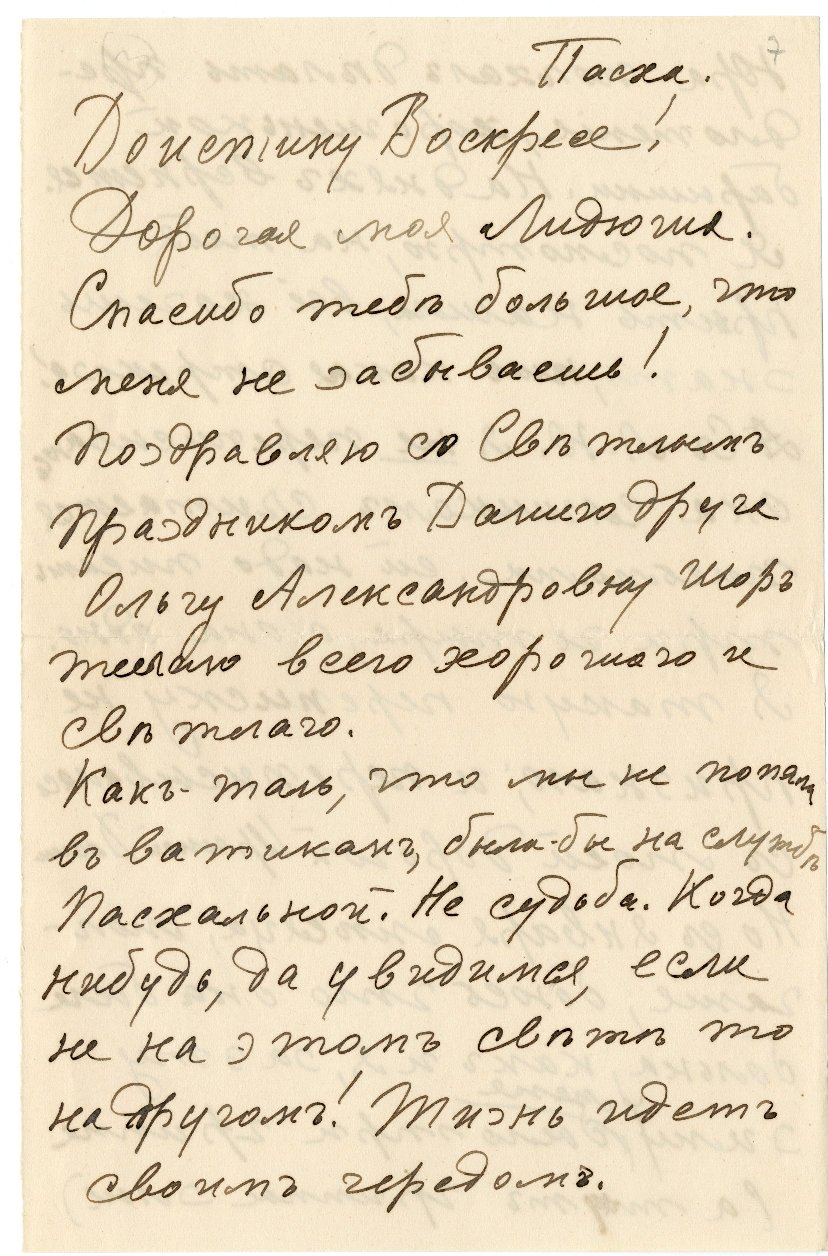 7
Пасха.
Воистину Воскресе!
Дорогая моя Лидюша.
Спасибо тебѣ большое, что
меня не забываешь!
Поздравляю со Свѣтлымъ
праздникомъ Вашего друга
Ольгу Александровну Шоръ
желаю всего хорошаго и
свѣтлаго.
Какъ-жаль, что мы не попала
въ ватиканъ, была-бы на службѣ
Пасхальной. Не судьба. Когда
нибудь, да увидимся, если
не на этомъ свѣтѣ то
на другомъ! Жизнь идетъ
своимъ чередомъ.